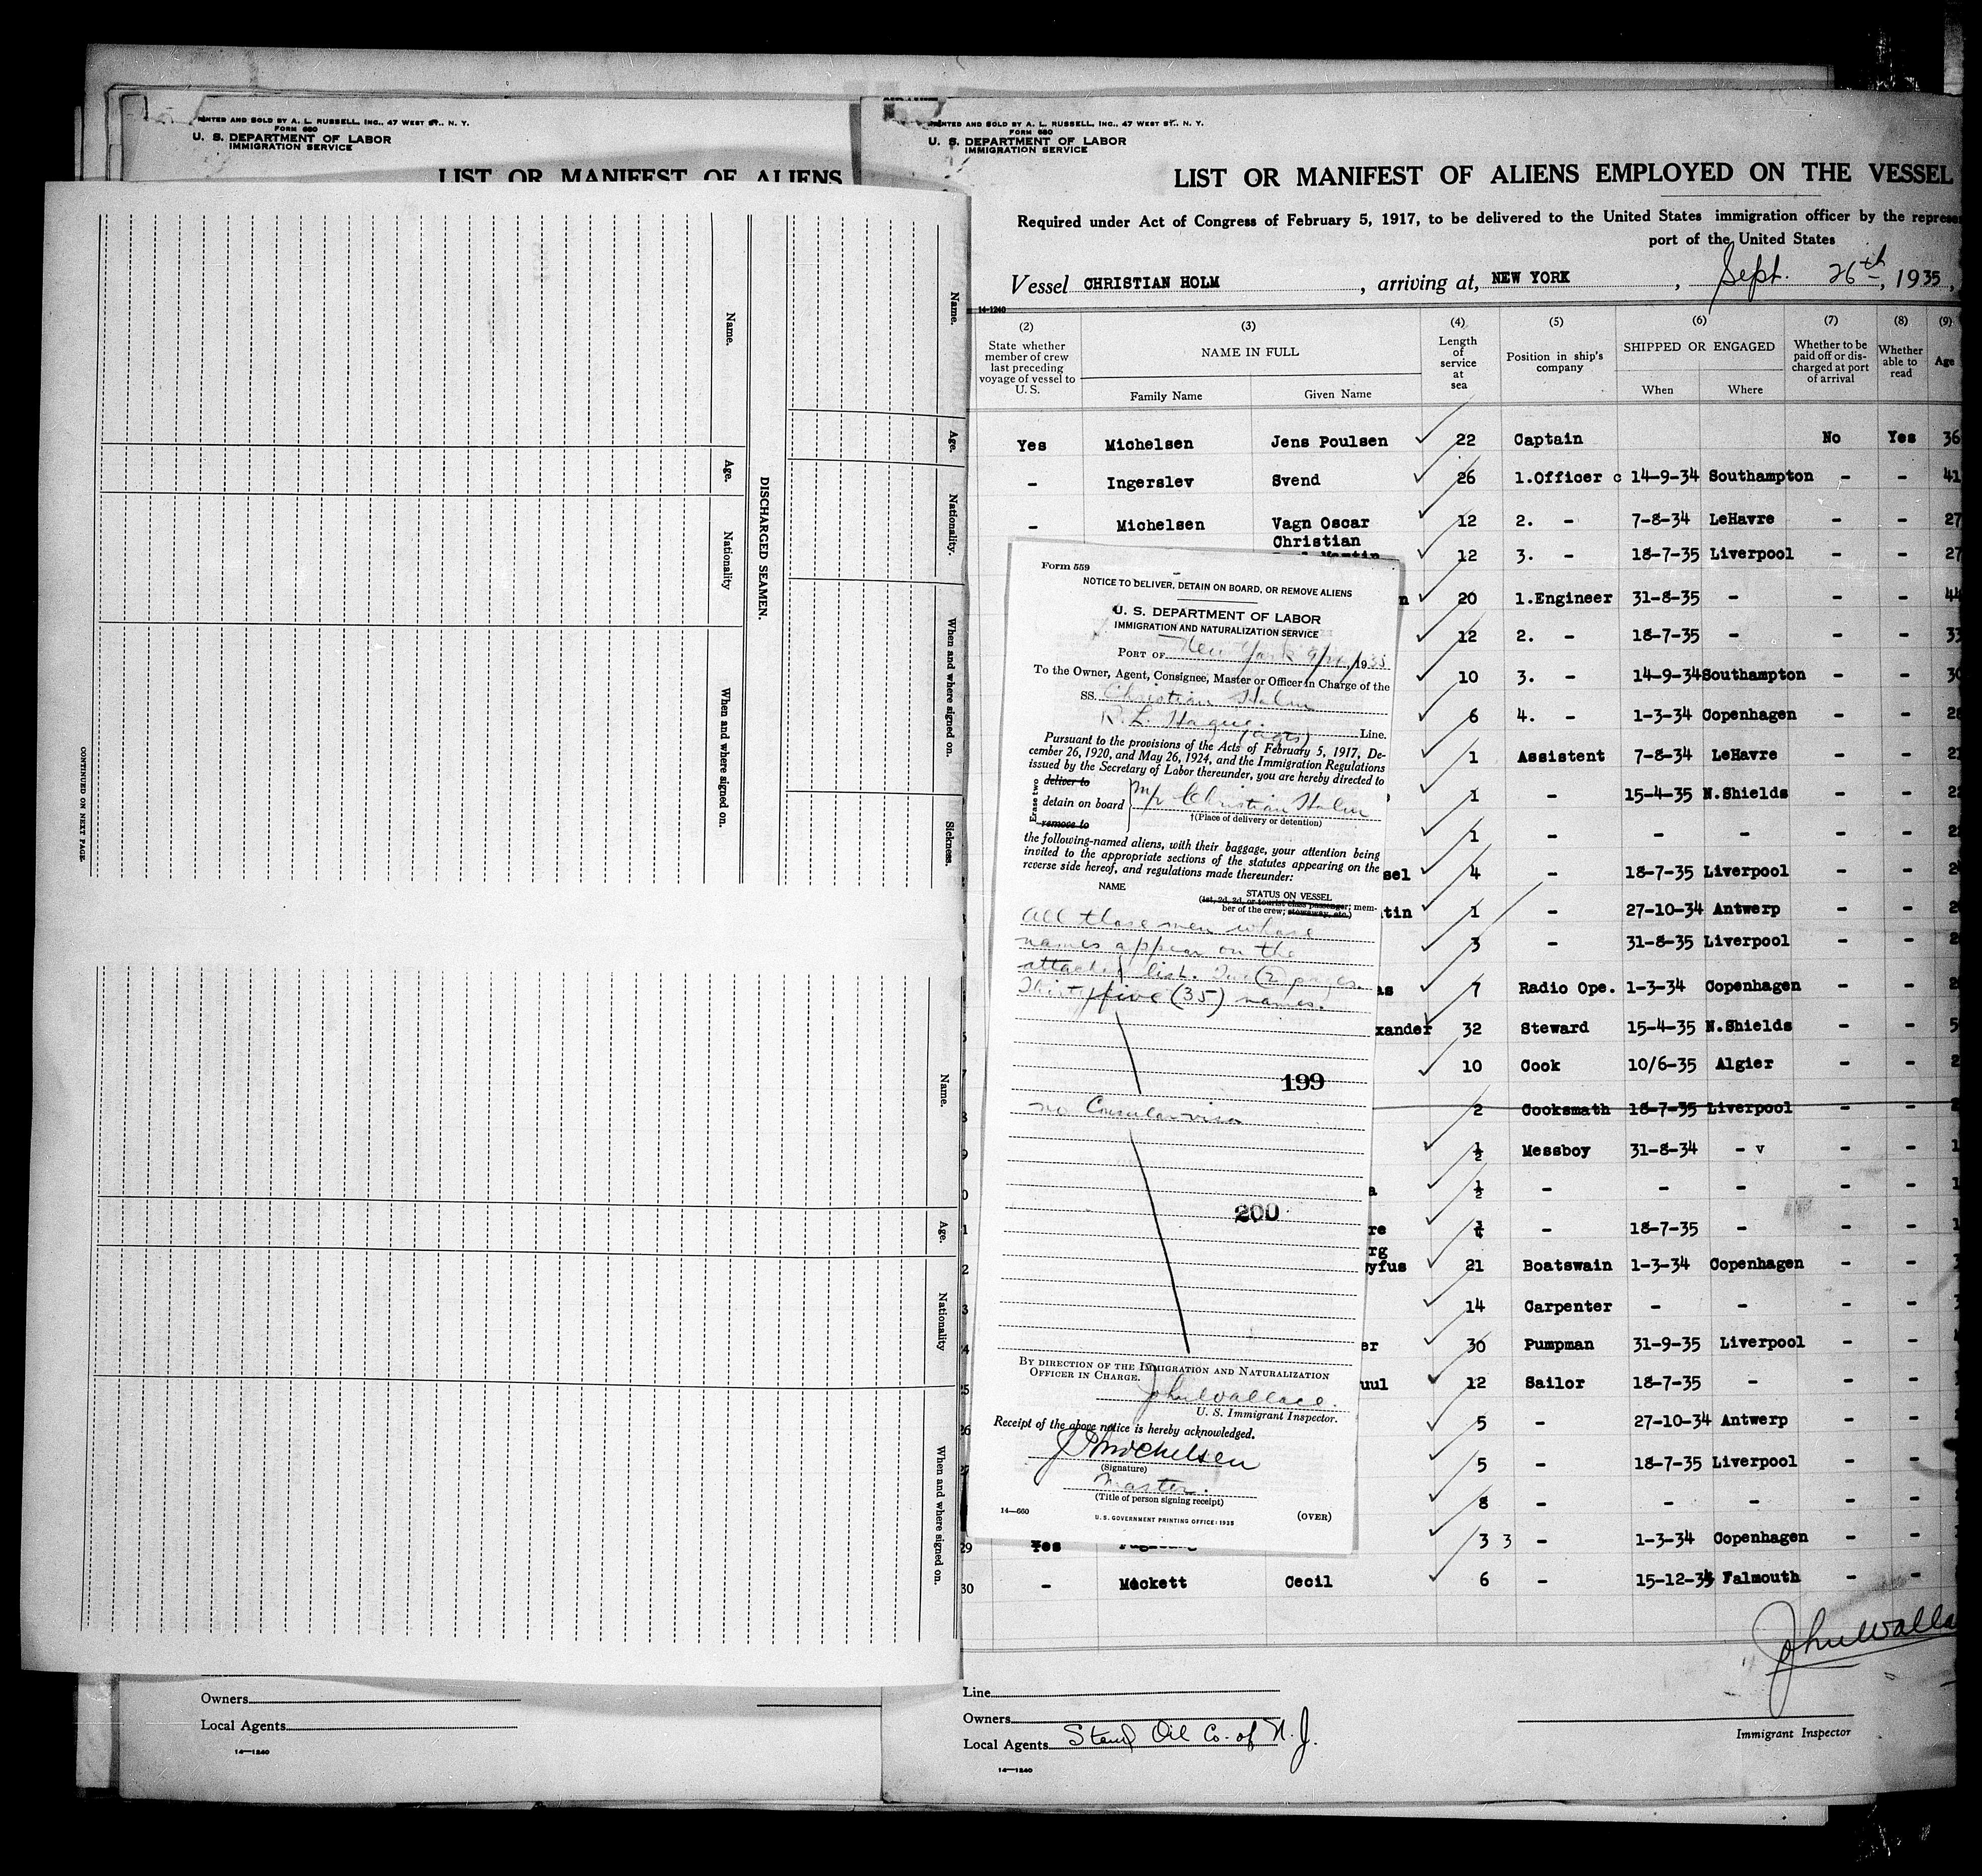 PRINTED AND SOLD BY A. L. RUSSELL, INC., 47 WEST ST., N. Y.
FORM 680
U. S. DEPARTMENT OF LABOR
IMMIGRATION SERVICE
LIST OR MANIFEST OF ALIENS
Name.
Age.
Nationality.
When and where signed on.
Sickness.
DISCHARGED SEAMEN.
Name.
Age.
Nationality
When and where signed on.
CONTINUED ON NEXT PAGE.
Name.
Age.
Nationality
When and where signed on.
Owners
Local Agents
14—1240
PRINTED AND SOLD BY A. L. RUSSELL, INC., 47 WEST ST., N. Y.
FORM 680
U. S. DEPARTMENT OF LABOR
IMMIGRATION SERVICE
LIST OR MANIFEST OF ALIENS EMPLOYED ON THE VESSEL
Required under Act of Congress of February 5, 1917, to be delivered to the United States immigration officer by the
port of the United States
Vessel CHRISTIAN HOLM, arriving at, NEW YORK, Sept. 26th, 1935,
14-1240
(2) (3) (4) (5) (6) (7) (8) (9)
State whether member of crew last preceding voyage of vessel to U. S.
NAME IN FULL
Family Name Given Name
Length of service at sea
Position in ship's company
SHIPPED OR ENGAGED
When Where
Whether to be paid off or discharged at port of arrival
Whether able to read
Age
Yes Michelsen Jens Poulsen 22 Captain No Yes 36
- Ingerslev Svend 26 1.Officer c 14-9-34 Southampton - - 41
- Michelsen Vagn Oscar 12 2. - 7-8-34 LeHavre - - 27
Christian
12 3. - 18-7-35 Liverpool - - 27
n 20 1.Engineer 31-8-35 - - - 44
12 2. - 18-7-35 - - - 33
10 3. - 14-9-34 Southampton - - 30
6 4. - 1-3-34 Copenhagen - - 28
1 Assistent 7-8-34 LeHavre - - 21
1 - 15-4-35 N.Shields - -
1 - - - - -
sel 4 - 18-7-35 Liverpool - -
tin 1 - 27-10-34 Antwerp - -
3 - 31-8-35 Liverpool - -
as 7 Radio Ope. 1-3-34 Copenhagen - -
xander 32 Steward 15-4-35 N.Shields - -
10 Cook 10/6-35 Algier - -
2 Cooksmath 18-7-35 Liverpool - -
½ Messboy 31-8-34 - v - -
a ½ - - - - -
re ¼ - 18-7-35 - - -
rg
yfus 21 Boatswain 1-3-34 Copenhagen - -
14 Carpenter - - - -
er 30 Pumpman 31-9-35 Liverpool - -
uul 12 Sailor 18-7-35 - - -
5 - 27-10-34 Antwerp - -
5 - 18-7-35 Liverpool - -
8 - - - - -
29 Yes 3 3 - 1-3-34 Copenhagen - -
30 - Mackett Cecil 6 - 15-12-34 Falmouth - -
Form 559
NOTICE TO DELIVER, DETAIN ON BOARD, OR REMOVE ALIENS
U. S. DEPARTMENT OF LABOR
IMMIGRATION AND NATURALIZATION SERVICE
PORT OF New York 9/26/1935
To the Owner, Agent, Consignee, Master or Officer in Charge of the
SS. Christian Holm
R. L. Hague. (agts) Line.
Pursuant to the provisions of the Acts of February 5, 1917, De-
cember 26, 1920, and May 26, 1924, and the Immigration Regulations
issued by the Secretary of Labor thereunder, you are hereby directed to
Erase two
deliver to
detain on board
remove to
M/V Christian Holm
†(Place of delivery or detention)
the following-named aliens, with their baggage, your attention being
invited to the appropriate sections of the statutes appearing on the
reverse side hereof, and regulations made thereunder:
NAME STATUS ON VESSEL
(1st, 2d, 3d, or tourist class passenger; mem-
ber of the crew; stowaway, etc.)
All those men whose
names appear on the
attached list. Two (2) pages.
Thirty five (35) names.
199
no Consular visa
200
BY DIRECTION OF THE IMMIGRATION AND NATURALIZATION
OFFICER IN CHARGE.
John Wallace.
U. S. Immigrant Inspector.
Receipt of the above notice is hereby acknowledged.
J P Michelsen
(Signature)
Master.
(Title of person signing receipt)
14—660
U. S. GOVERNMENT PRINTING OFFICE: 1935
(OVER)
John Walla
Line
Owners
Local Agents Stand Oil Co. of N. J.
Immigrant Inspector
14—1240